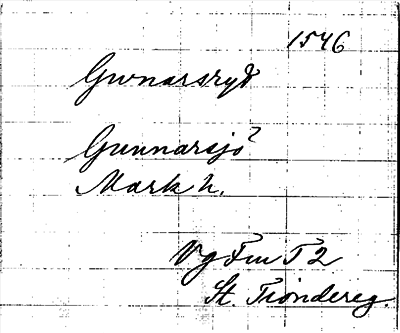 1546
Gwnarsryd
Gunnarsjö?
Mark h.
Vg Fm T 2
St. Tiondereg.